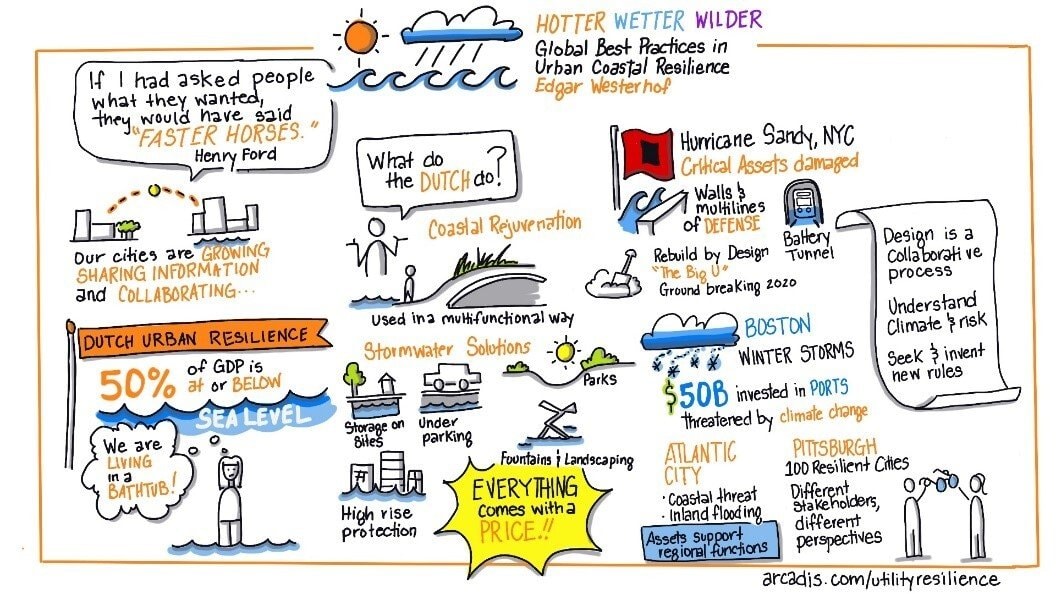 HOTTER WETTER WILDER
Global Best Practices in
Urban Coastal Resilience
Edgar Westerhof
If I had asked people
what they wanted,
they would have said
"FASTER HORSES."
Henry Ford
Our cities are GROWING
SHARING INFORMATION
and COLLABORATING...
DUTCH URBAN RESILIENCE
50% of GDP is
at or BELOW
SEA LEVEL
We are
LIVING
in a
BATHTUB!
What do
the DUTCH do?
Coastal Rejuvenation
Used in a multi-functional way
Stormwater Solutions
Storage on
Sites
Under
parking
Parks
Fountains & Landscaping
High rise
protection
EVERYTHING
comes with a
PRICE!!
Hurricane Sandy, NYC
Critical Assets damaged
Walls &
multilines
of DEFENSE
Battery
Tunnel
Rebuild by Design
"The Big U"
Ground breaking 2020
BOSTON
WINTER STORMS
$50B invested in PORTS
threatened by climate change
ATLANTIC
CITY
· Coastal threat
· Inland flooding
Assets support
regional functions
PITTSBURGH
100 Resilient Cities
Different
stakeholders,
different
perspectives
Design is a
collaborative
process
Understand
Climate & risk
Seek & invent
new rules
arcadis.com/utilityresilience